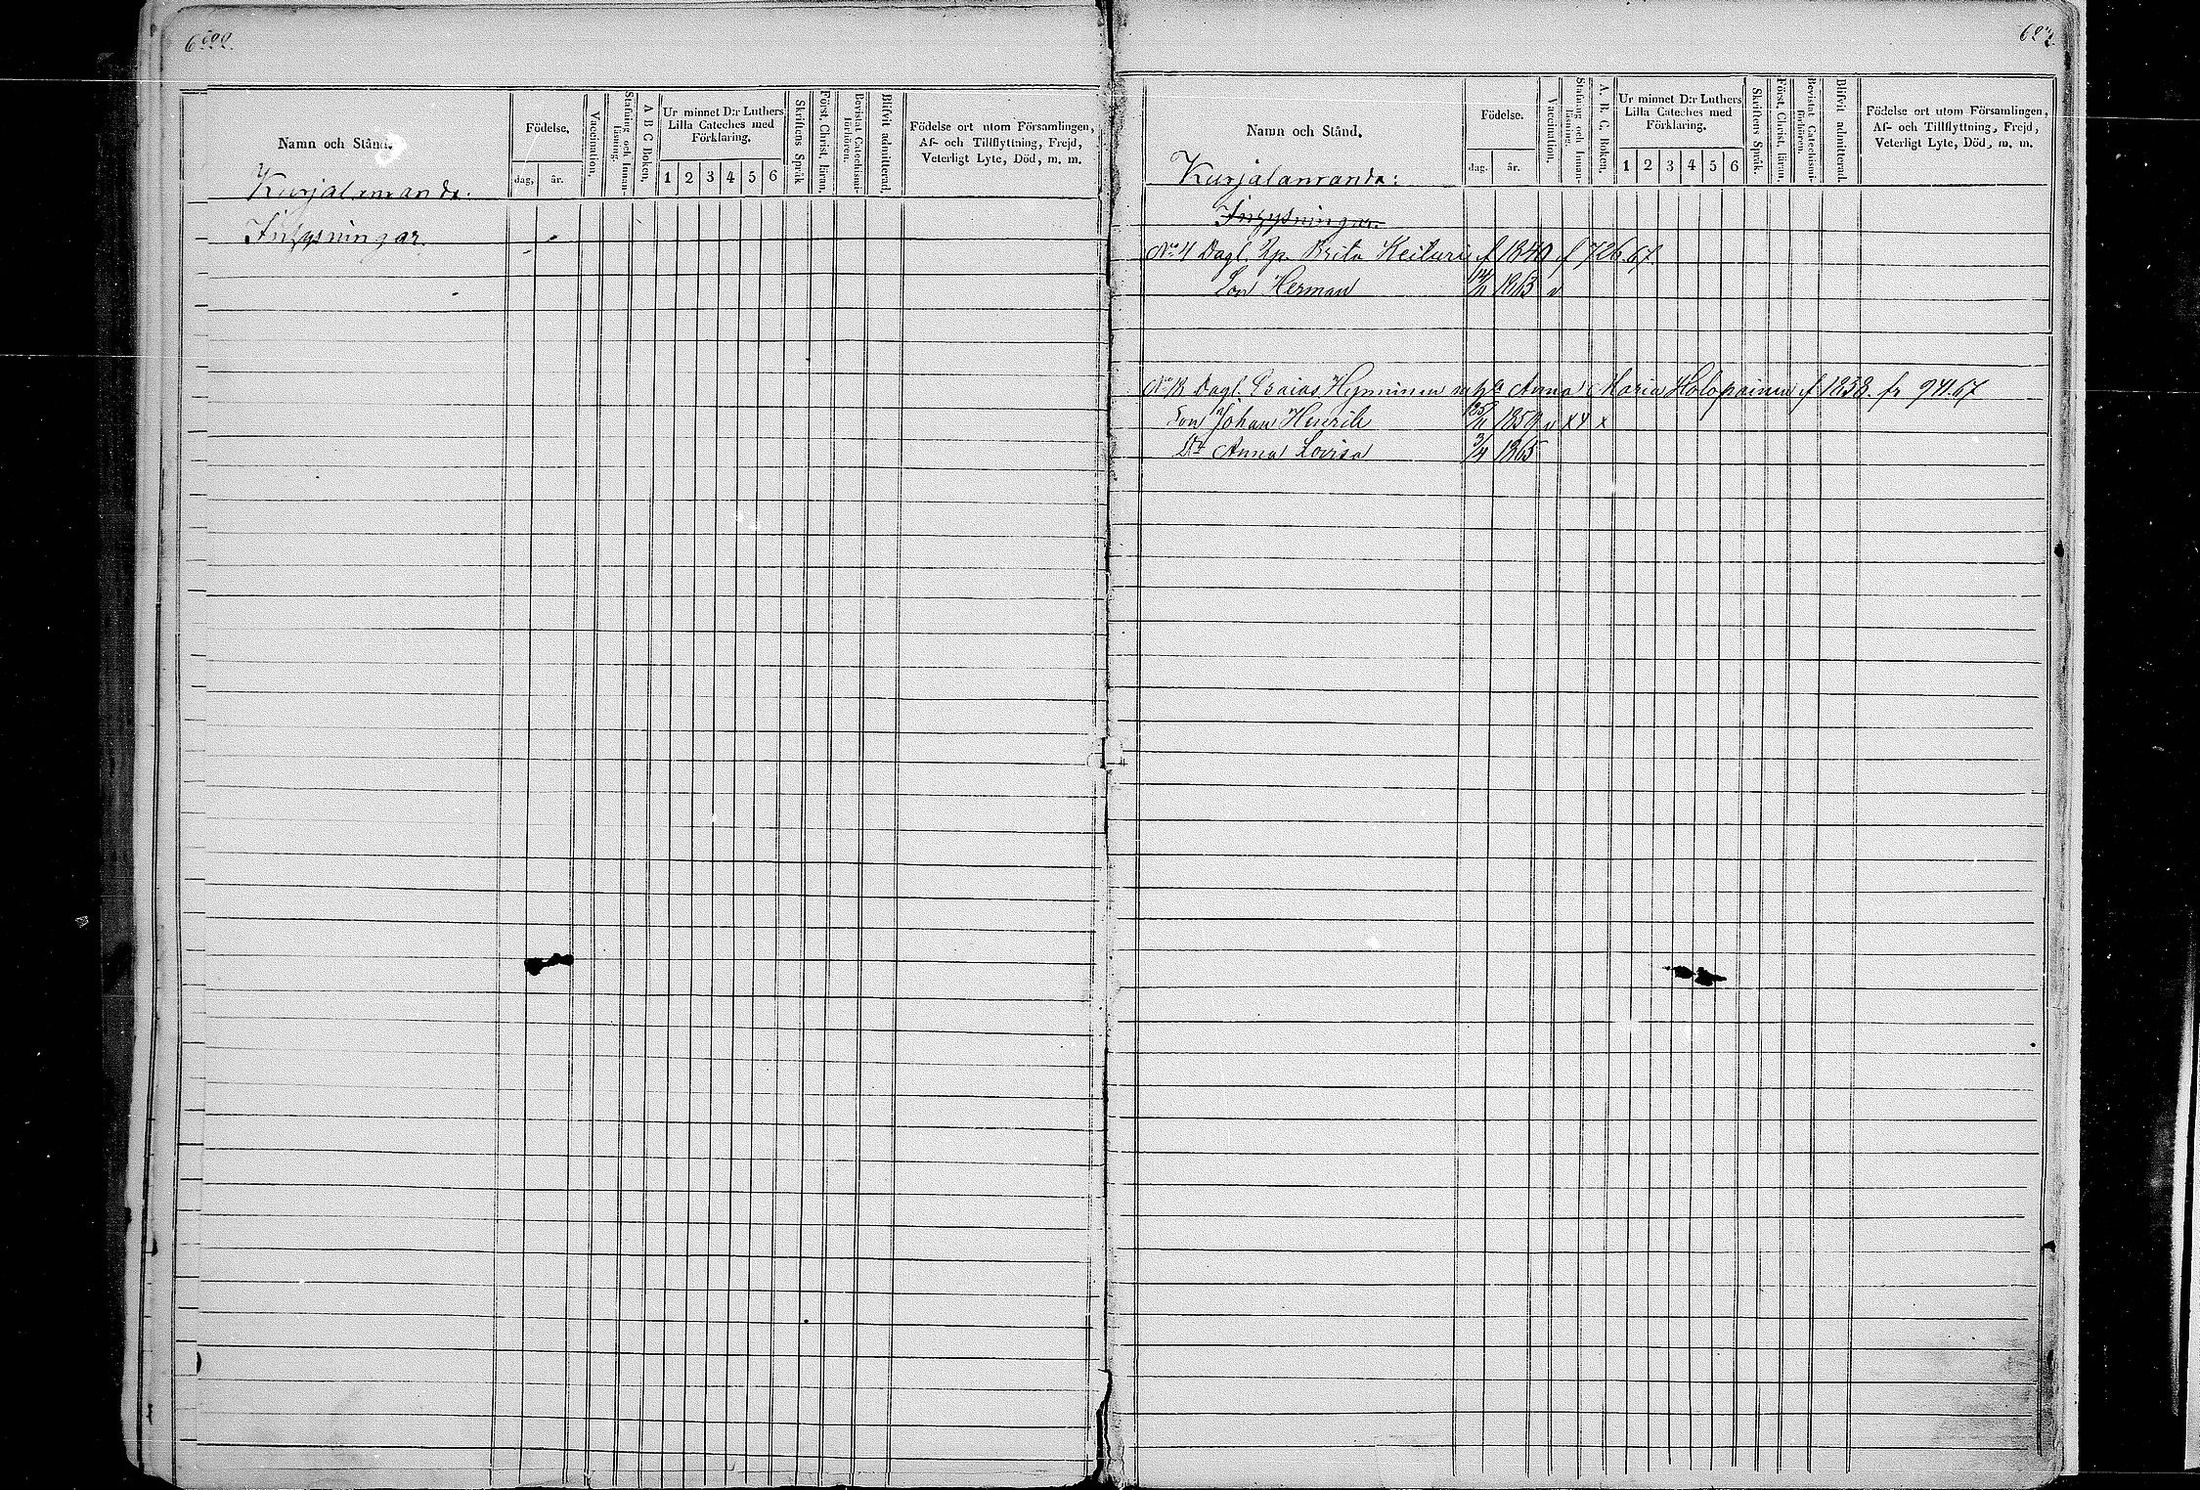 622.
Namn och Stånd.
Födelse.
dag. år.
Vaccination.
Stafning och Innanläsning.
A B C Boken.
Ur minnet D:r Luthers Lilla Cateches med Förklaring.
1 2 3 4 5 6
Skriftens Språk
Först. Christ. läran.
Bevistat Catechismi-förhören.
Blifvit admitterad.
Födelse ort utom Församlingen,
Af- och Tillflyttning, Frejd,
Veterligt Lyte, Död, m. m.
Kurjalanranda:
Inhysningar.
Namn och Stånd.
Födelse.
dag. år.
Vaccination.
Stafning och Innanläsning.
A. B. C. Boken.
Ur minnet D:r Luthers Lilla Cateches med Förklaring.
1 2 3 4 5 6
Skriftens Språk.
Först. Christ. läran.
Bevistat Catechismi-förhören.
Blifvit admitterad.
Födelse ort utom Församlingen,
Af- och Tillflyttning, Frejd,
Veterligt Lyte, Död, m. m.
Kurjalanranda:
Inhysningar.
No 4 Dagl. Brita Keituri f 1840 f 726.67.
Son Herman 1865 v
Dagl. Esaias Hynninen Anna Maria Holopainen f 1838. fr 941.67
Son Johan Henrik 25/11 1859 v x x x
Dr Anna Lovisa 3/4 1865